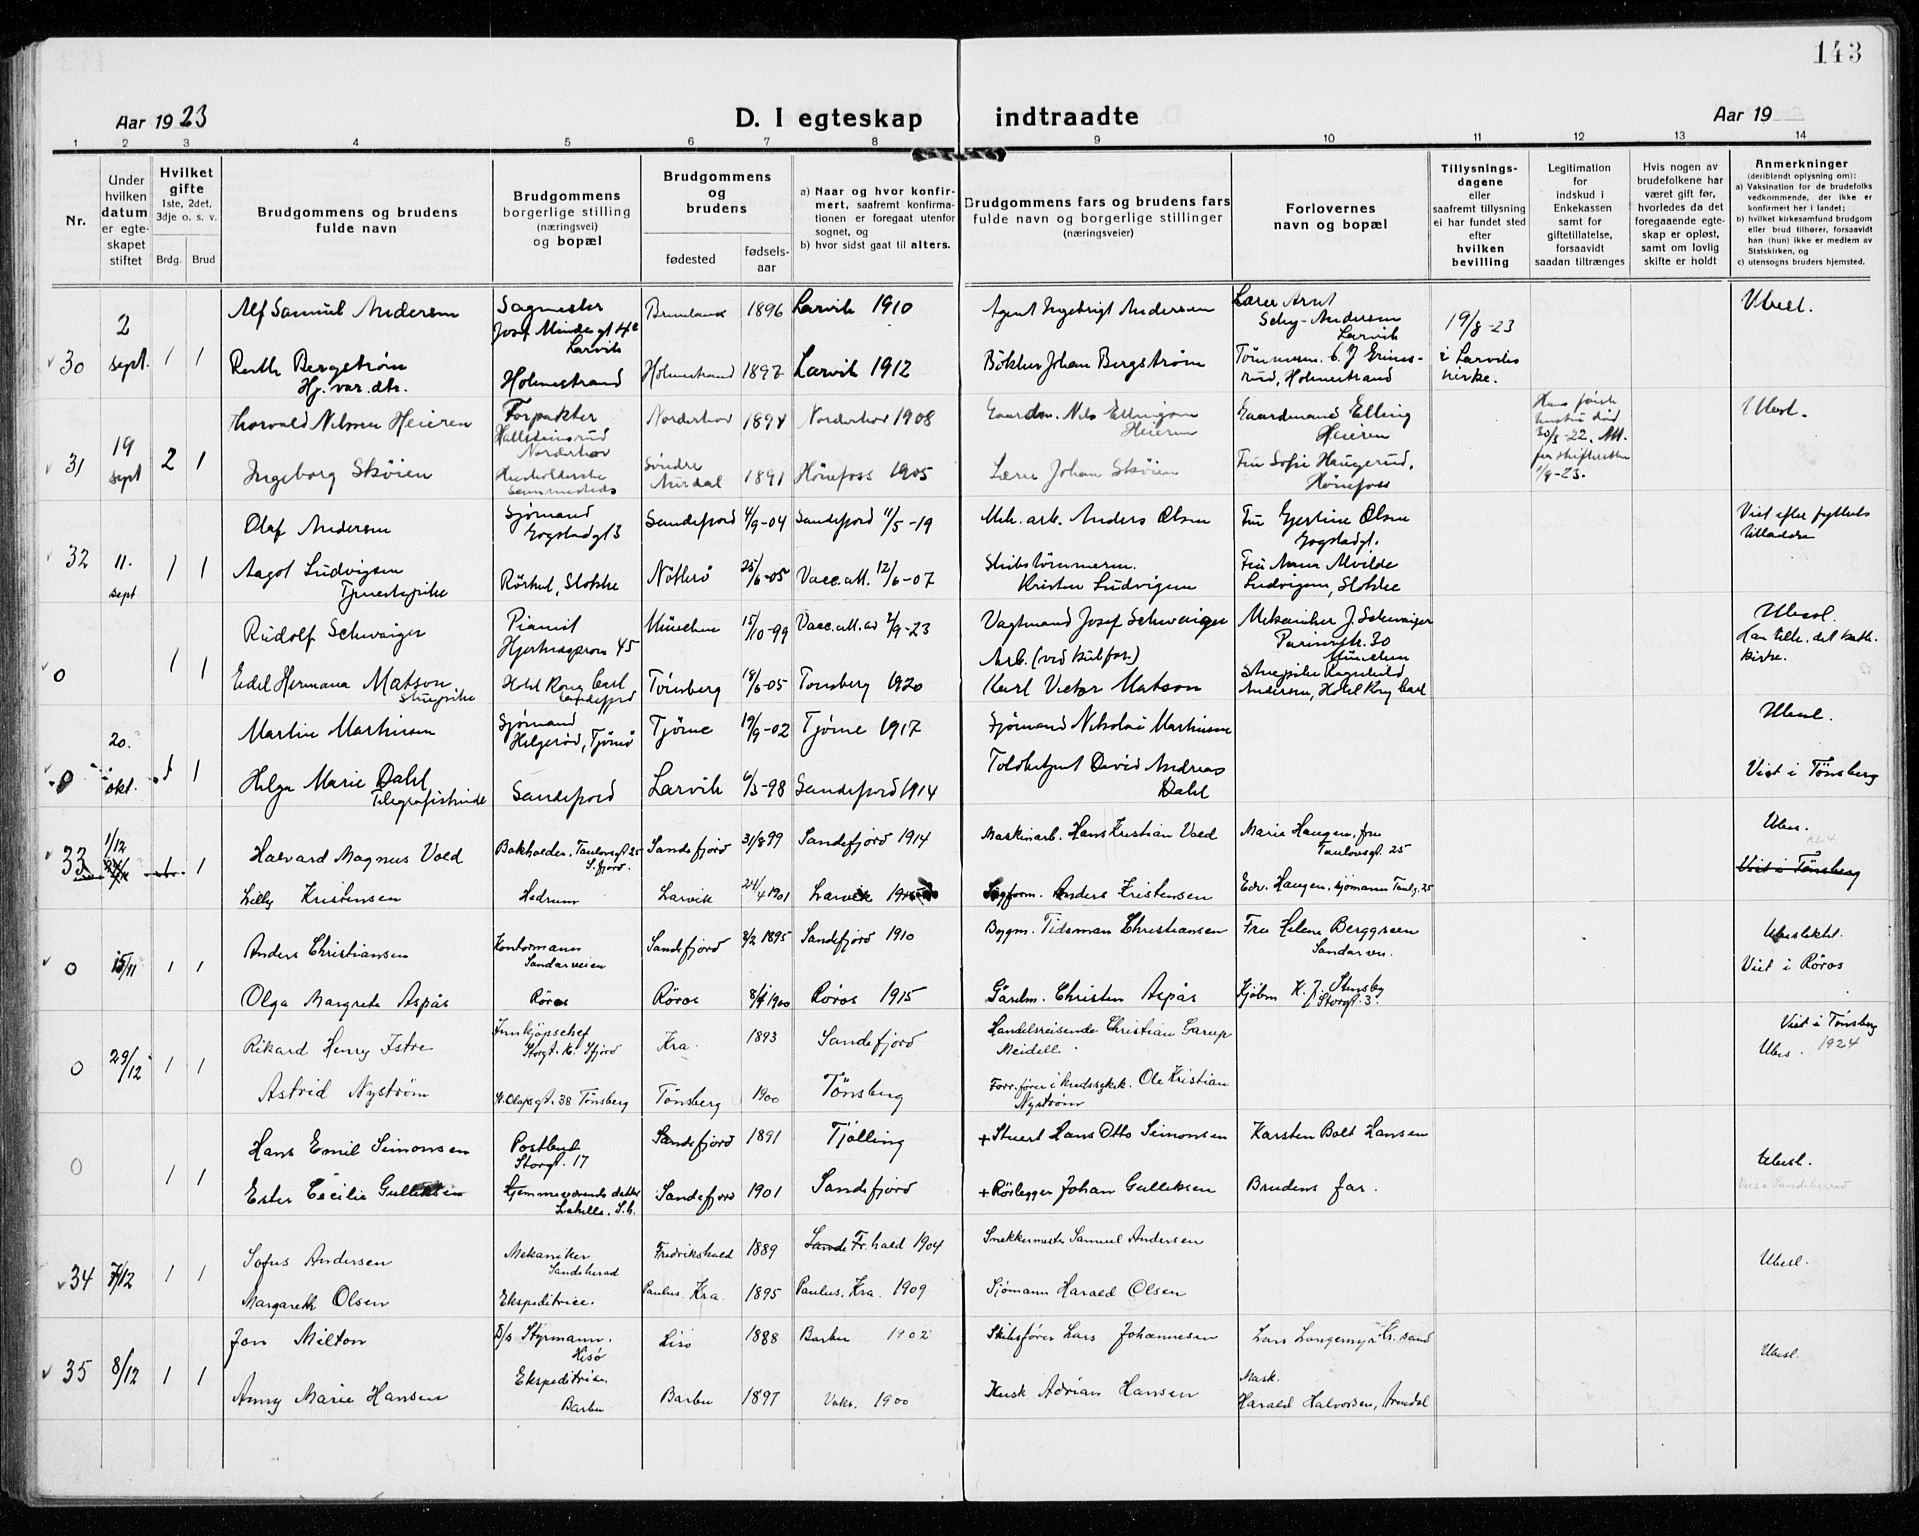 143
Aar 1923
D. I egteskap indtraadte
Aar 19
1 2 3 4 5 6 7 8 9 10 11 12 13 14
Nr.
Under
hvilken
datum
er egte-
skapet
stiftet
Hvilket
gifte
1ste, 2det,
3dje o. s. v.
Brdg. Brud
Brudgommens og brudens
fulde navn
Brudgommens
borgerlige stilling
(næringsvei)
og bopæl
Brudgommens
og
brudens
fødested
fødsels-
aar
a) Naar og hvor konfir-
mert, saafremt konfirma-
tionen er foregaat utenfor
sognet, og
b) hvor sidst gaat til alters.
Brudgommens fars og brudens fars
fulde navn og borgerlige stillinger
(næringsveier)
Forlovernes
navn og bopæl
Tillysnings-
dagene
eller
saafremt tillysning
ei har fundet sted
efter
hvilken
bevilling
Legitimation
for
indskud i
Enkekassen
samt for
giftetillatelse,
forsaavidt
saadan tiltrænges
Hvis nogen av
brudefolkene har
været gift før,
hvorledes da det
foregaaende egte-
skap er opløst,
samt om lovlig
skifte er holdt
Anmerkninger
(deriblendt oplysning om):
a) Vaksination for de brudefolks
vedkommende, der ikke er
konfirmert her i landet;
b) hvilket kirkesamfund brudgom
eller brud tilhører, forsaavidt
han (hun) ikke er medlem av
Statskirken, og
c) utensogns bruders hjemsted.
30
2
sept.
1 1
Alf Samuel Andersen
Sagmester
Larvik
Brunlanes 1896 Larvik 1910
Agent Ingebrigt Andersen
Lærer Arnt
Selvy-Andersen
Larvik
19/8-23
i Larviks
kirke.
Ubesl.
Ruth Bergstrøm
Hj. vær. dtr.
Holmestrand
Holmestrand 1892 Larvik 1912
Bökker Johan Bergstrøm
Tömmerm. C. J. Grines-
rud, Holmestrand
31
19
sept
2 1
Thorvald Nilsen Heieren
Forpakter
Hallsteinsrud
Norderhov
Norderhov 1894 Norderhov 1908
Gaardm. Nils Ellingsen
Heieren
Gaardmand Elling
Heieren
Hans første
hustru død
30/3-22. Att.
fra skifteretten
1/9-23.
Ubesl.
Ingeborg Skøien
Husholderske
sammesteds
Søndre
Aurdal 1891 Hönefoss 1905
Lærer Johan Skøien
Fru Sofie Haugerud,
Hönefoss
32
11.
sept
1 1
Olaf Andersen
Sjømand
Gogstadgt 3
Sandefjord 4/9-04 Sandefjord 11/5-19
Mek. arb. Anders Olsen
Fru Gjertine Olsen
Gogstadgt.
Viet efter fylkets
tilladelse
Aagot Ludvigsen
Tjenestepike
Rörkol, Stokke
Nötterö 25/6-05 Vacc. att. 12/6-07
Skibstömmerm.
Kristen Ludvigsen
Fru Anna Alvilde
Ludvigsen, Stokke
0
1 1
Rudolf Schwaiger
Pianist
Hjertnespromn 45
München 15/10-99 Vacc. att. av 2/9-23
Vagtmand Josef Schwaiger
Mekaniker J. Schwaiger
München
Ubesl.
Han tilh. det kath.
kirke.
Edel Hermana Matson
Stuepike
Hotel Kong Carl
Sandefjord
Tönsberg 18/6-05 Tönsberg 1920
Arb. (ved hvlfab.)
Karl Victor Matson
Stuepike Ragnhild
Andersen, Hotel Kong Carl
0
20.
okt.
1 1
Martin Martinsen
Sjømand
Helgerød, Tjömö
Tjöme 19/9-02 Tjöme 1917
Sjømand Nikolai Martinsen
Ubesl.
Helga Marie Dahl
Telegrafistinde
Sandefjord
Larvik 6/3-98 Sandefjord 1914
Toldbetjent David Andreas
Dahl
Viet i Tönsberg
33
1/12
1 1
Halvard Magnus Vold
Bokholder. Taulowsgt 25
S.fjord.
Sandefjord 31/8 99 Sandefjord 1914
Maskinarb. Hans Kristian Vold
Marie Haugen, fru
Taulowsgt. 25
Ubes.
Viet i Tönsberg
Lilly Kristensen
Hedrum
Larvik 24/4 1901 Larvik
Sagform. Anders Kristensen
Edv. Haugen, sjömann Taulg. 25
0
15/11
1 1
Anders Christiansen
Kontormann
Sandarveien
Sandefjord 8/2 1895 Sandefjord 1910
Byggm. Tideman Christiansen
Fru Helene Berggreen
Sandarvn.
Ubeslektet.
Viet i Röros
Olga Margrete Aspås
Röros
Röros 8/4 1900 Röros 1915
Gårdm. Christen Aspås
Kjöbm K. J. Stensby
Storgt. 3.
0
29/12
1 1
Rikard Henry Istre
Innkjöpschef
Storgt. 16. Sfjord
Kra. 1893 Sandefjord
Handelsreisende Christian Garup
Meidell.
Viet i Tönsberg
Ubes. 1924
Astrid Nyström
St. Olafsgt. 38 Tönsberg
Tönsberg 1900 Tönsberg
Ole Kristian
Nyström
0
1 1
Hans Emil Simonsen
Postbud
Storgt. 17
Sandefjord 1891 Tjölling
+ Stuert Hans Otto Simonsen
Karsten Bolt Hansen
Ubesl.
Viet i Sandeherred
Ester Cecilie Gulliksen
Hjemmeværende datter
Sandefjord 1901 Sandefjord
+ Rörlegger Johan Gulliksen
Brudens far.
34
7/12
1 1
Sofus Andersen
Mekaniker
Sandeherad
Fredrikshald 1889 Sande Fr.hald 1904
Snekkermester Samuel Andersen
Ubesl.
Margareth Olsen
Ekspeditrice.
Paulus. Kra. 1895 Paulus. Kra. 1909
Sjömann Harald Olsen
35
8/12
1 1
Jon Milton
D/s Styrmann.
Hisö
Hisö 1888 Barbu 1902
Skibsförer Lars Johannesen
Lars Langemyr Kr.sand
Ubesl.
Anny Marie Hansen
Ekspeditrice.
Barbu
Barbu 1897 Vaks. 1900
Kusk Adrian Hansen
Mask.
Harald Halvorsen, Arendal